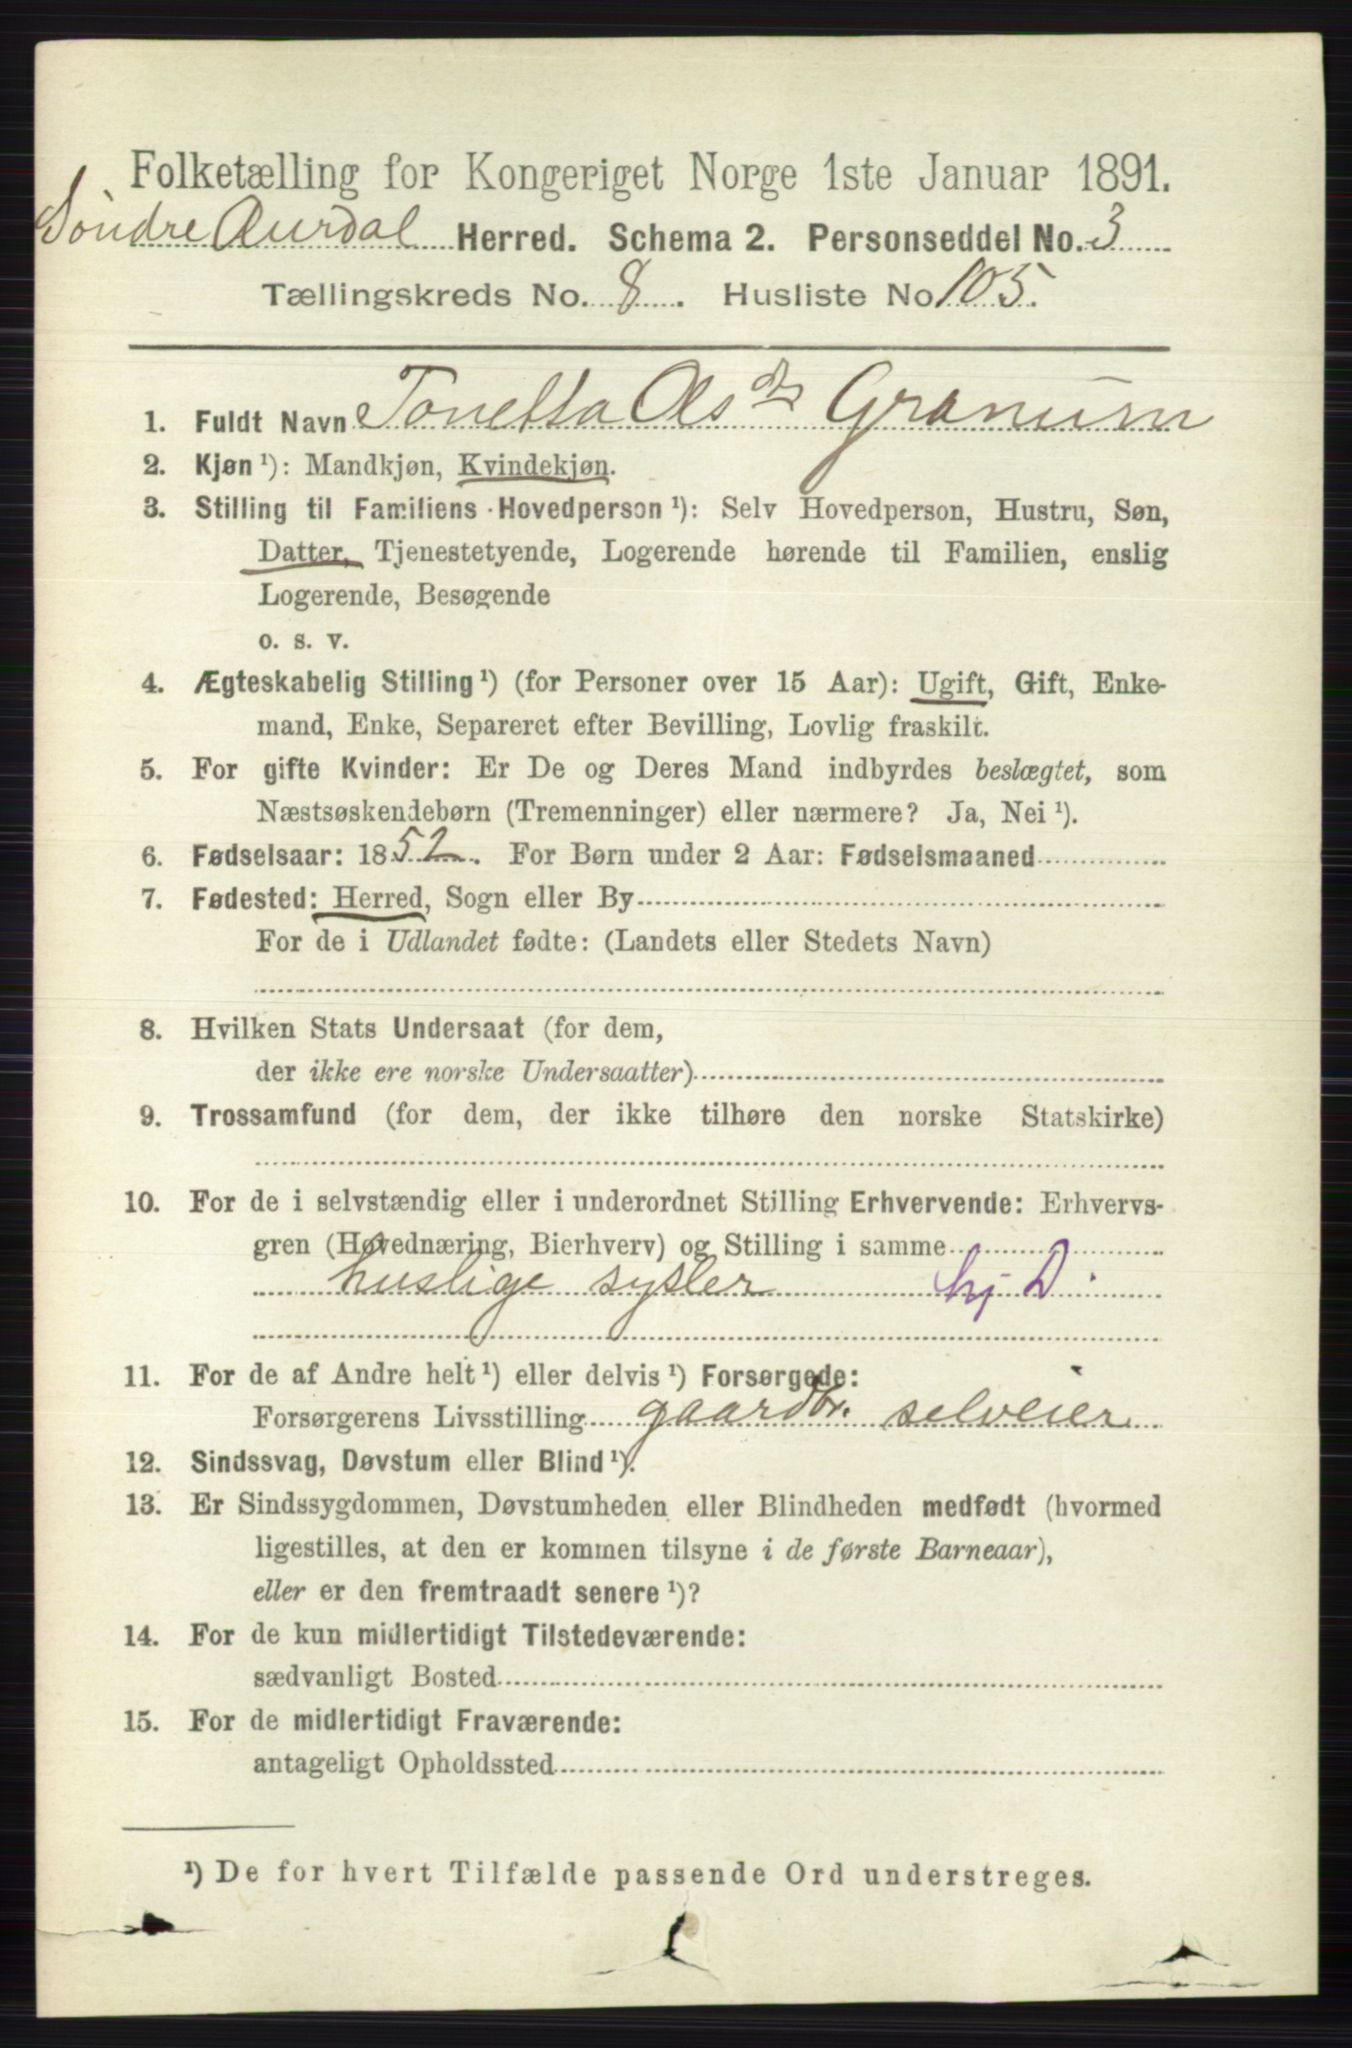 Folketælling for Kongeriget Norge 1ste Januar 1891.
Söndre Aurdal Herred. Schema 2. Personseddel No. 3
Tællingskreds No. 8. Husliste No 105.
1. Fuldt Navn Tonetta Olsdtr Granum
2. Kjøn ¹): Mandkjøn, Kvindekjøn.
3. Stilling til Familiens Hovedperson ¹): Selv Hovedperson, Hustru, Søn,
Datter, Tjenestetyende, Logerende hørende til Familien, enslig
Logerende, Besøgende
o. s. v.
4. Ægteskabelig Stilling ¹) (for Personer over 15 Aar): Ugift, Gift, Enke-
mand, Enke, Separeret efter Bevilling, Lovlig fraskilt.
5. For gifte Kvinder: Er De og Deres Mand indbyrdes beslægtet, som
Næstsøskendebørn (Tremenninger) eller nærmere? Ja, Nei ¹).
6. Fødselsaar: 1852. For Børn under 2 Aar: Fødselsmaaned
7. Fødested: Herred, Sogn eller By
For de i Udlandet fødte: (Landets eller Stedets Navn)
8. Hvilken Stats Undersaat (for dem,
der ikke ere norske Undersaatter)
9. Trossamfund (for dem, der ikke tilhøre den norske Statskirke)
10. For de i selvstændig eller i underordnet Stilling Erhvervende: Erhvervs-
gren (Hovednæring, Bierhverv) og Stilling i samme
huslige sysler hj D.
11. For de af Andre helt ¹) eller delvis ¹) Forsørgede:
Forsørgerens Livsstilling gaardbr. selveier
12. Sindssvag, Døvstum eller Blind ¹).
13. Er Sindssygdommen, Døvstumheden eller Blindheden medfødt (hvormed
ligestilles, at den er kommen tilsyne i de første Barneaar),
eller er den fremtraadt senere ¹)?
14. For de kun midlertidigt Tilstedeværende:
sædvanligt Bosted
15. For de midlertidigt Fraværende:
antageligt Opholdssted
¹) De for hvert Tilfælde passende Ord understreges.